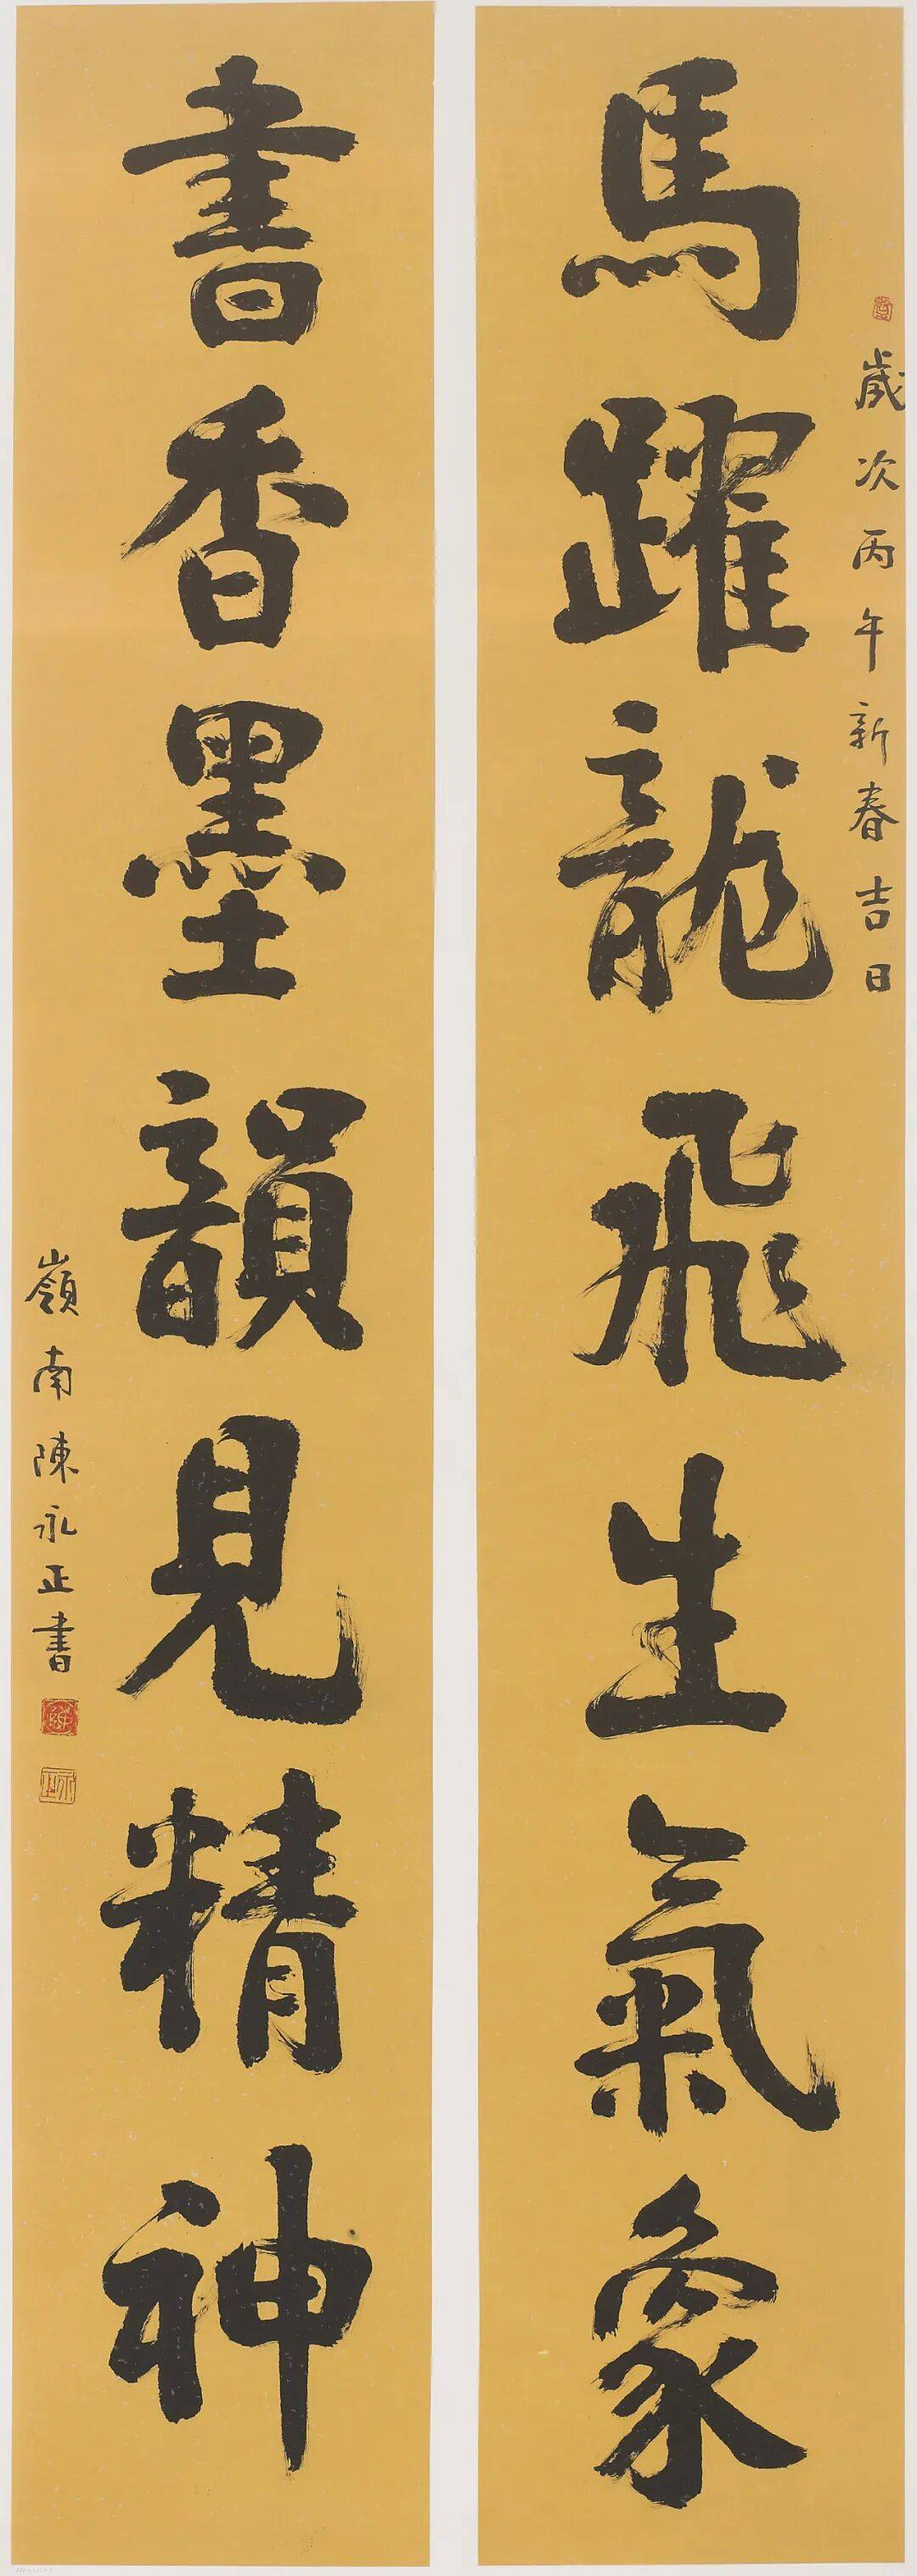 馬躍龍飛生氣象
歲次丙午新春吉日
書香墨韻見精神
嶺南陳永正書
陳
永正